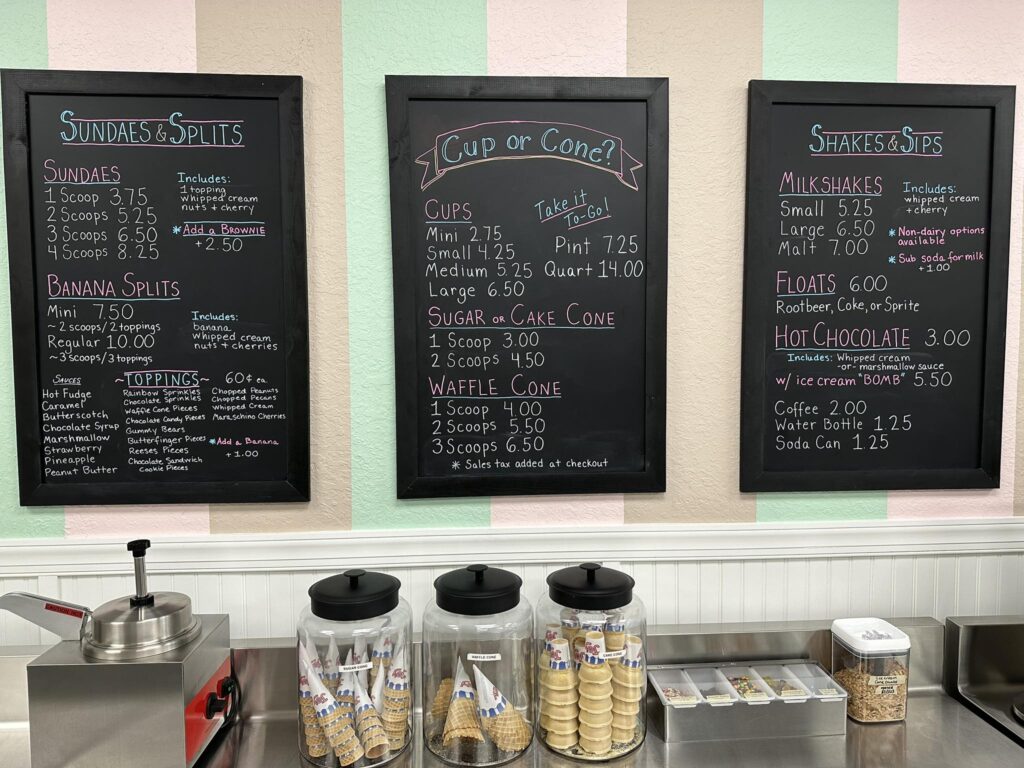 SUNDAES & SPLITS
SUNDAES
1 Scoop 3.75
2 Scoops 5.25
3 Scoops 6.50
4 Scoops 8.25
Includes:
1 topping
whipped cream
nuts + cherry
* Add a BROWNIE
+2.50
BANANA SPLITS
Mini 7.50
~2 scoops/2 toppings
Regular 10.00
~3 scoops/3 toppings
Includes:
banana
whipped cream
nuts + cherries
SAUCES
Hot Fudge
Caramel
Butterscotch
Chocolate Syrup
Marshmallow
Strawberry
Pineapple
Peanut Butter
~TOPPINGS~ 60¢ ea.
Rainbow Sprinkles
Chocolate Sprinkles
Waffle Cone Pieces
Chocolate Candy Pieces
Gummy Bears
Butterfinger Pieces
Reeses Pieces
Chocolate Sandwich
Cookie Pieces
Chopped Peanuts
Chopped Pecans
Whipped Cream
Maraschino Cherries
* Add a Banana
+1.00
Cup or Cone?
CUPS
Mini 2.75
Small 4.25
Medium 5.25
Large 6.50
Take it
To-Go!
Pint 7.25
Quart 14.00
SUGAR OR CAKE CONE
1 Scoop 3.00
2 Scoops 4.50
WAFFLE CONE
1 Scoop 4.00
2 Scoops 5.50
3 Scoops 6.50
* Sales tax added at checkout
SHAKES & SIPS
MILKSHAKES
Small 5.25
Large 6.50
Malt 7.00
Includes:
whipped cream
+ cherry
* Non-dairy options
available
* Sub soda for milk
+1.00
FLOATS 6.00
Rootbeer, Coke, or Sprite
HOT CHOCOLATE 3.00
Includes: Whipped cream
-or- marshmallow sauce
w/ ice cream "BOMB" 5.50
Coffee 2.00
Water Bottle 1.25
Soda Can 1.25
CAUTION: HOT
SUGAR CONE
WAFFLE CONE
CAKE CONE